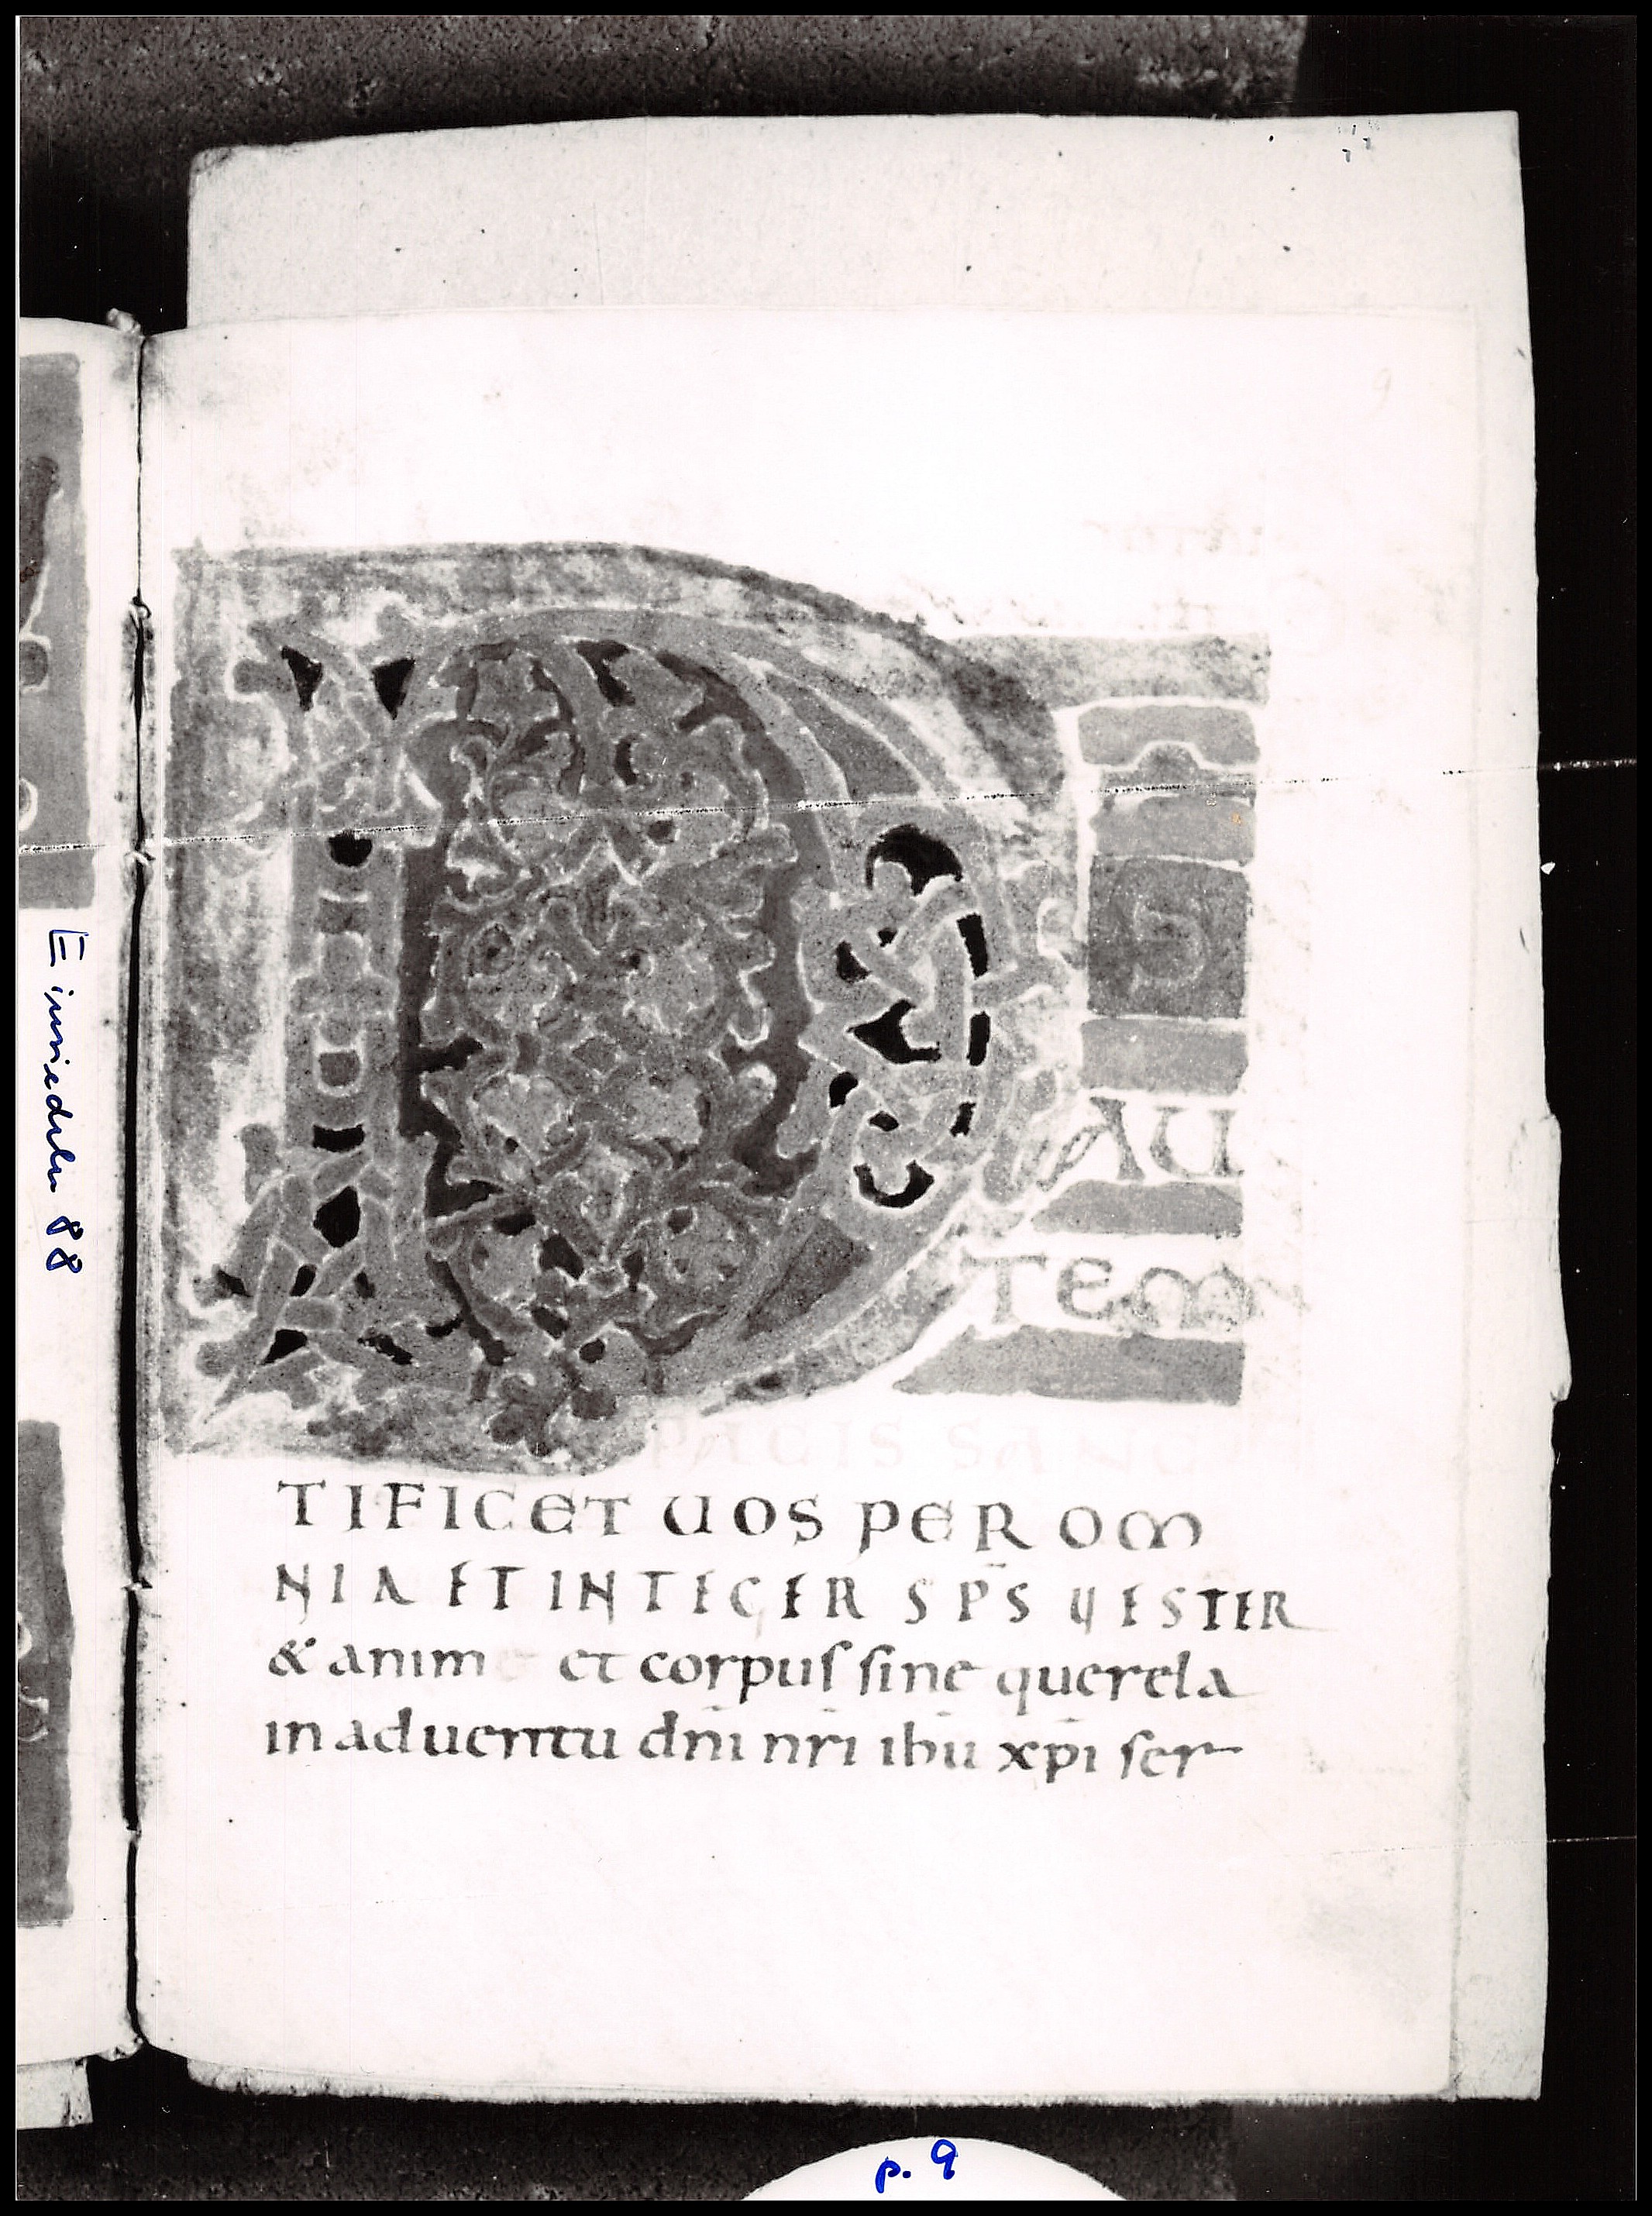 D S
AU
TEM
PACIS SANC
TIFICET UOS PER OM
NIA ET INTEGER SPS UESTER
& anim et corpus sine querela
in aduentu dni nri ihu xpi ser
Einsiedeln 88
p. 9
9